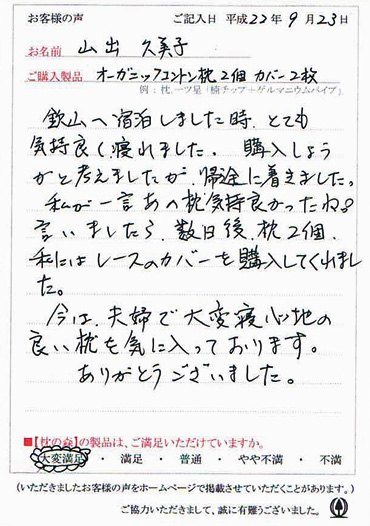 お客様の声　ご記入日 平成22年9月23日
お名前 山出 久美子
ご購入製品 オーガニックコットン枕2個 カバー2枚
例：枕.一ツ星「楠チップ＋ゲルマニウムパイプ」
欽山へ宿泊しました時、とても
気持良く寝れました。購入しよう
かと考えましたが、帰途に着きました。
私が一言あの枕気持良かったね。
言いましたら、数日後、枕2個、
私にはレースのカバーを購入してくれまし
た。
今は、夫婦で大変寝心地の
良い枕を気に入っております。
ありがとうございました。
■【枕の森】の製品は、ご満足いただけていますか。
大変満足 ・ 満足 ・ 普通 ・ やや不満 ・ 不満
（いただきましたお客様の声をホームページで掲載させていただくことがあります。）
ご協力いただきまして、誠に有難うございました。